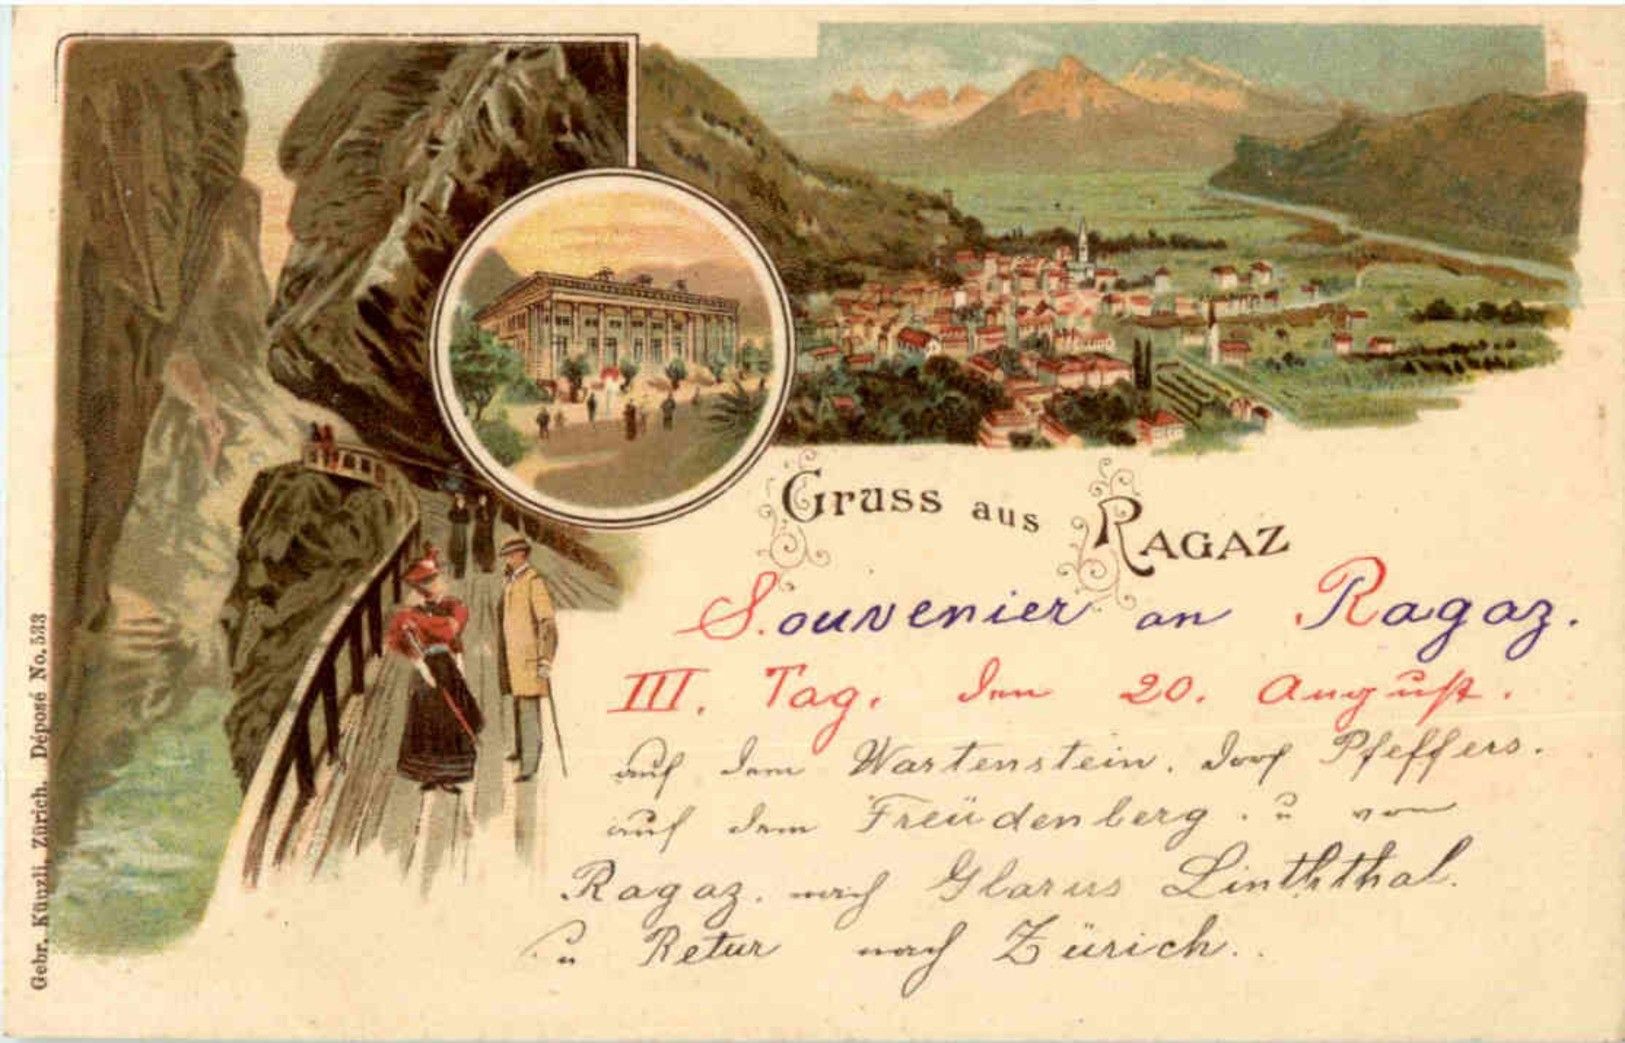 Gruss aus Ragaz
Souvenier an Ragaz.
III. Tag. den 20. August.
auf dem Wartenstein. Dorf Pfeffers.
auf dem Freüdenberg. u von
Ragaz. nach Glarus Linththal.
u Retur nach Zürich..
Gebr. Künzli, Zürich. Déposé No. 533